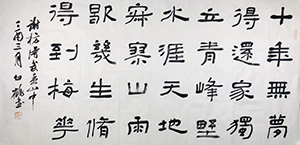 十年無夢
得還家獨
立青峰野
水涯天地
寂寥山雨
歇幾生脩
得到梅華
謝枋得武夷山中
丁酉三月